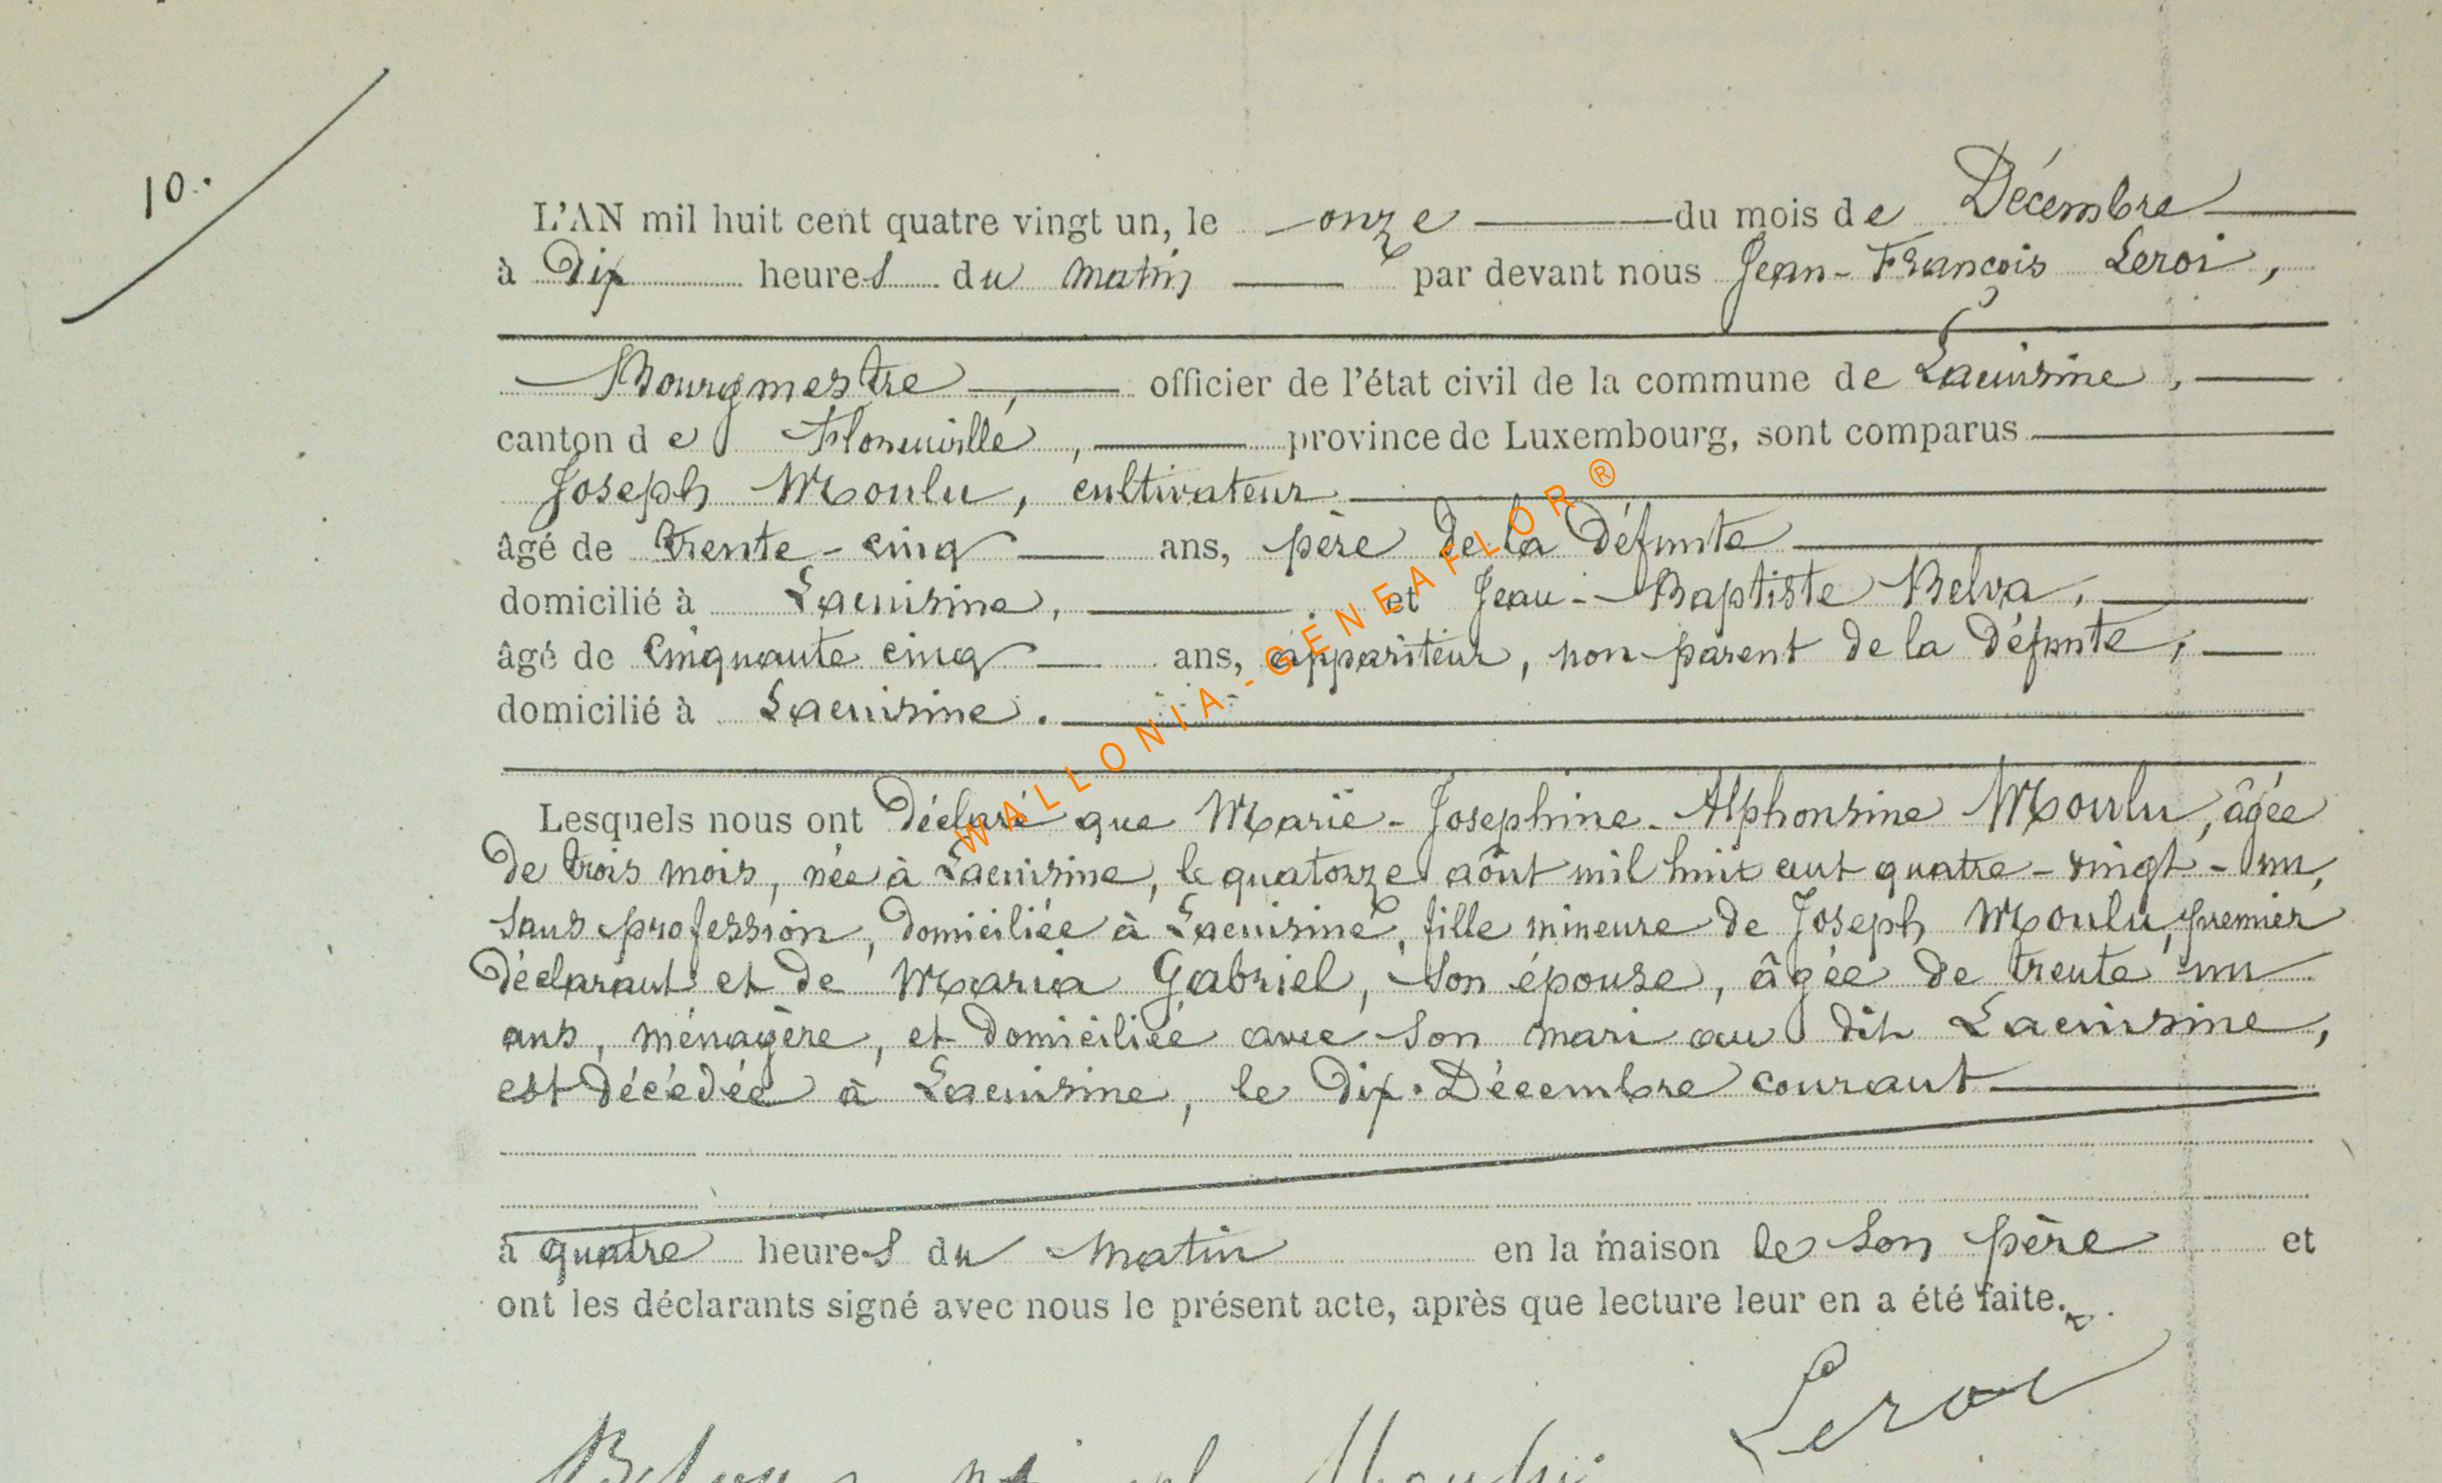 10.
L'AN mil huit cent quatre vingt un, le onze du mois de Décembre
à Dix heures du matin par devant nous Jean-François Leroi,
Bourgmestre, officier de l'état civil de la commune de Lacuisine,
canton de Florenville, province de Luxembourg, sont comparus
Joseph Moulu, cultivateur
âgé de trente-cinq ans, père de la Défunte
domicilié à Lacuisine, et Jean-Baptiste Belva,
âgé de Cinquante cinq ans, appariteur, non parent de la Défunte,
domicilié à Lacuisine.
WALLONIA-GENEAFLOR®
Lesquels nous ont Déclaré que Marie-Josephine-Alphonsine Moulu, âgée
De trois mois, née à Lacuisine, le quatorze août mil huit cent quatre-vingt-un,
sans profession, domiciliée à Lacuisine, fille mineure de Joseph Moulu, premier
Déclarant et de Maria Gabriel, son épouse, âgée de trente un
ans, ménagère, et domiciliée avec son mari au dit Lacuisine,
est Décédée à Lacuisine, le Dix Décembre courant
à quatre heures du matin en la maison de son père et
ont les déclarants signé avec nous le présent acte, après que lecture leur en a été faite.
Leroi